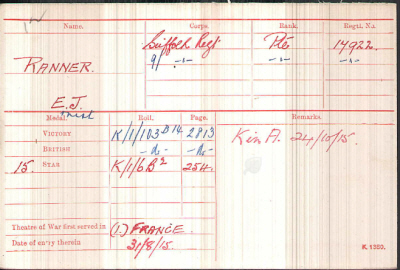 Name. Corps. Rank. Regtl. No.
RANNER. Suffolk Regt Pte 14922.
9/ -"- -"- -"-
E.J.
Medal. Roll. Page. Remarks.
VICTORY K/1/103 B14 2813 K in A. 24/10/15.
BRITISH -do- -do-
15. STAR K/1/6 B2 254.
Theatre of War first served in (1) FRANCE.
Date of entry therein 31/8/15.
K 1380.